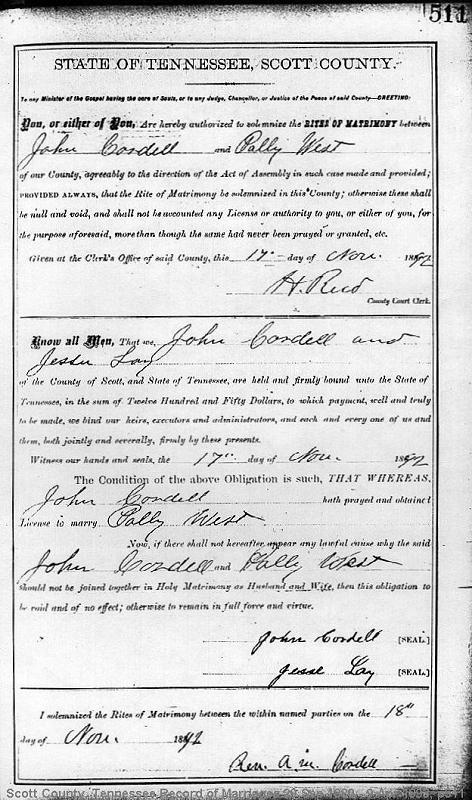 511
STATE OF TENNESSEE, SCOTT COUNTY.
To any Minister of the Gospel having the care of Souls, or to any Judge, Chancellor, or Justice of the Peace of said County—GREETING:
You, or either of You, Are hereby authorized to solemnize the RITES OF MATRIMONY between
John Cordell and Polly West
of our County, agreeably to the direction of the Act of Assembly in such case made and provided;
PROVIDED ALWAYS, that the Rite of Matrimony be solemnized in this County; otherwise these shall
be null and void, and shall not be accounted any License or authority to you, or either of you, for
the purpose aforesaid, more than though the same had never been prayed or granted, etc.
Given at the Clerk's Office of said County, this 17" day of Nov. 1892
H. Reed
County Court Clerk.
Know all Men, That we, John Cordell and
Jesse Lay
of the County of Scott, and State of Tennessee, are held and firmly bound unto the State of
Tennessee, in the sum of Twelve Hundred and Fifty Dollars, to which payment, well and truly
to be made, we bind our heirs, executors and administrators, and each and every one of us and
them, both jointly and severally, firmly by these presents.
Witness our hands and seals, the 17" day of Nov. 1892
The Condition of the above Obligation is such, THAT WHEREAS,
John Cordell hath prayed and obtained
License to marry Polly West
Now, if there shall not hereafter appear any lawful cause why the said
John Cordell and Polly West
should not be joined together in Holy Matrimony as Husband and Wife, then this obligation to
be void and of no effect; otherwise to remain in full force and virtue.
John Cordell [SEAL.]
Jesse Lay [SEAL.]
I solemnized the Rites of Matrimony between the within named parties on the 18"
day of Nov. 1892
Rev. A. M. Cordell
Scott County, Tennessee Record of Marriages